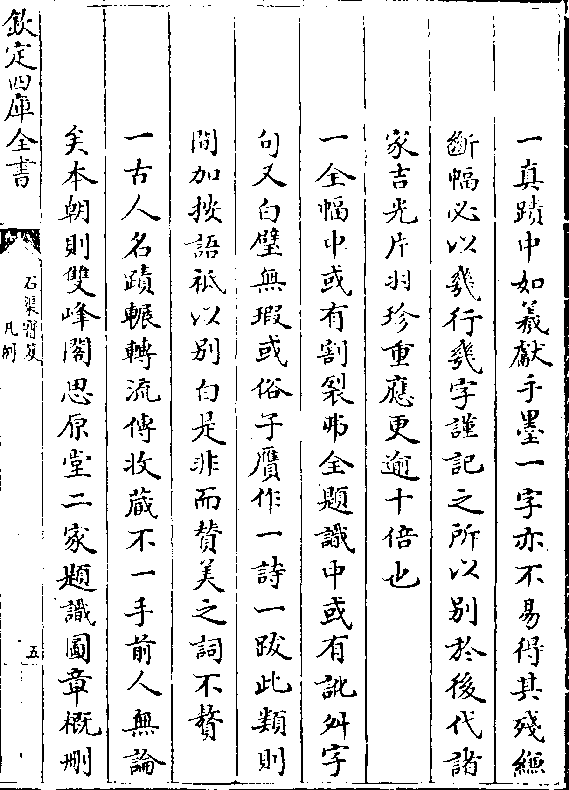 一真蹟中如羲獻手墨一字亦不易得其殘縑
斷幅必以幾行幾字謹記之所以别於後代諸
家吉光片羽珍重應更逾十倍也
一全幅中或有割裂弗全題識中或有訛舛字
句又白璧無瑕或俗子贋作一詩一跋此類則
間加按語祇以别白是非而賛美之詞不贅
一古人名蹟輾轉流傳收藏不一手前人無論
矣本朝則雙峰閣思原堂二家題識圖章概刪
欽定四庫全書
石渠寳笈
凡例
五